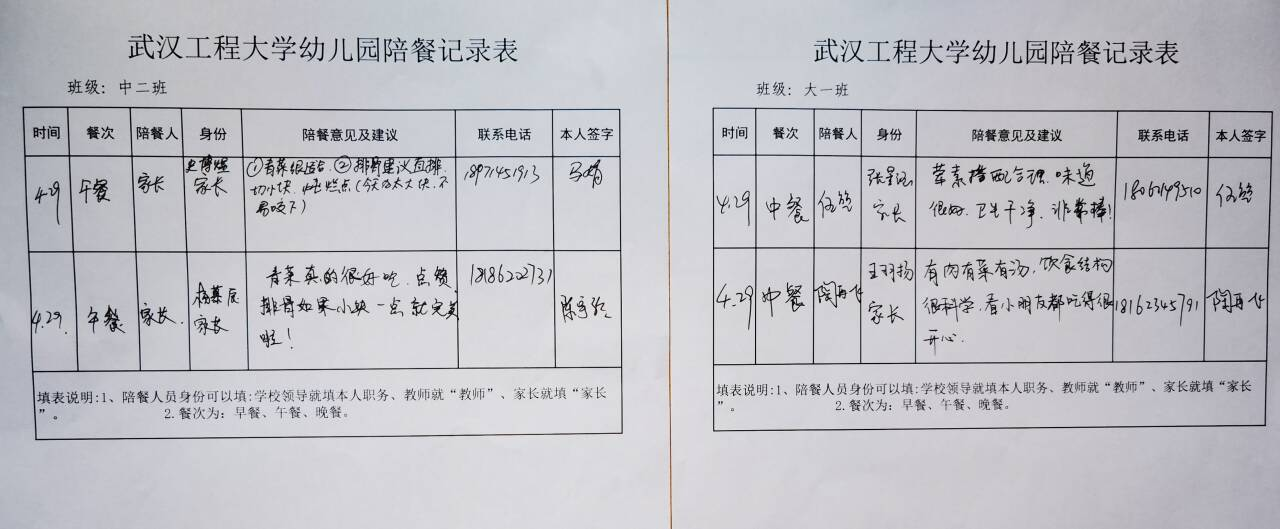 武汉工程大学幼儿园陪餐记录表
班级: 中二班
时间 餐次 陪餐人 身份 陪餐意见及建议 联系电话 本人签字
4.29 午餐 家长 家长 ①青菜很适合.②排骨建议直排切小块,烂点(今天的太大块,不易咬下) 18971451913
4.29. 午餐 家长. 家长 青菜真的很好吃.点赞.
排骨如果小块一点就完美
啦!
填表说明:1、陪餐人员身份可以填:学校领导就填本人职务、教师就“教师”、家长就填“家长
”。 2.餐次为: 早餐、午餐、晚餐。
武汉工程大学幼儿园陪餐记录表
班级: 大一班
时间 餐次 陪餐人 身份 陪餐意见及建议 联系电话 本人签字
4.29 中餐 家长 荤素搭配合理.味道
很好.卫生干净.非常棒! 18062149510
4.29 中餐 陶再华 王羽扬
家长 有肉有菜有汤,饮食结构
很科学.看小朋友都吃得很
开心. 18162345791 陶再华
填表说明:1、陪餐人员身份可以填:学校领导就填本人职务、教师就“教师”、家长就填“家长
”。 2.餐次为: 早餐、午餐、晚餐。